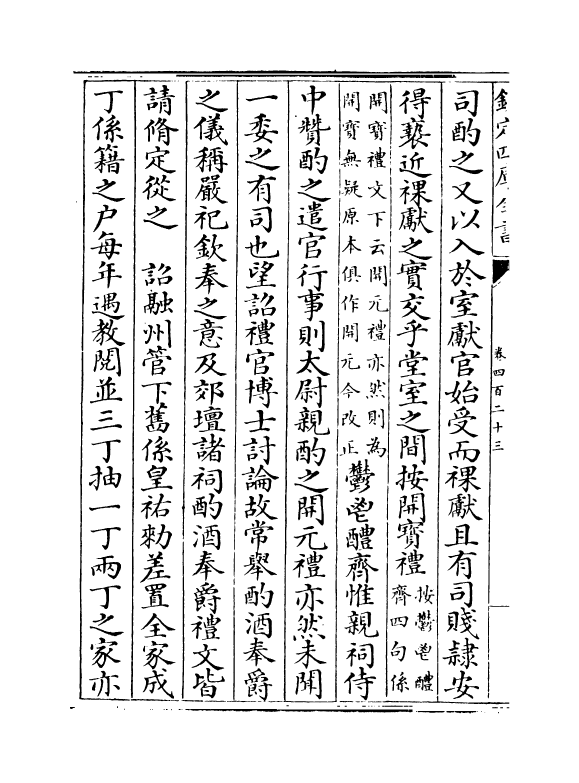 欽定四庫全書
卷四百二十三
司酌之又以入於室獻官始受而祼獻且有司賤隸安
得褻近祼獻之實交乎堂室之間按開寶禮按鬱鬯醴齊四句係
開寶禮文下云開元禮亦然則為開寶無疑原本俱作開元今改正鬱鬯醴齊惟親祠侍
中贊酌之遣官行事則太尉親酌之開元禮亦然未聞
一委之有司也望詔禮官博士討論故常舉酌酒奉爵
之儀稱嚴祀欽奉之意及郊壇諸祠酌酒奉爵禮文皆
請脩定從之　詔融州管下舊係皇祐勑差置全家成
丁係籍之户每年遇教閱並三丁抽一丁兩丁之家亦